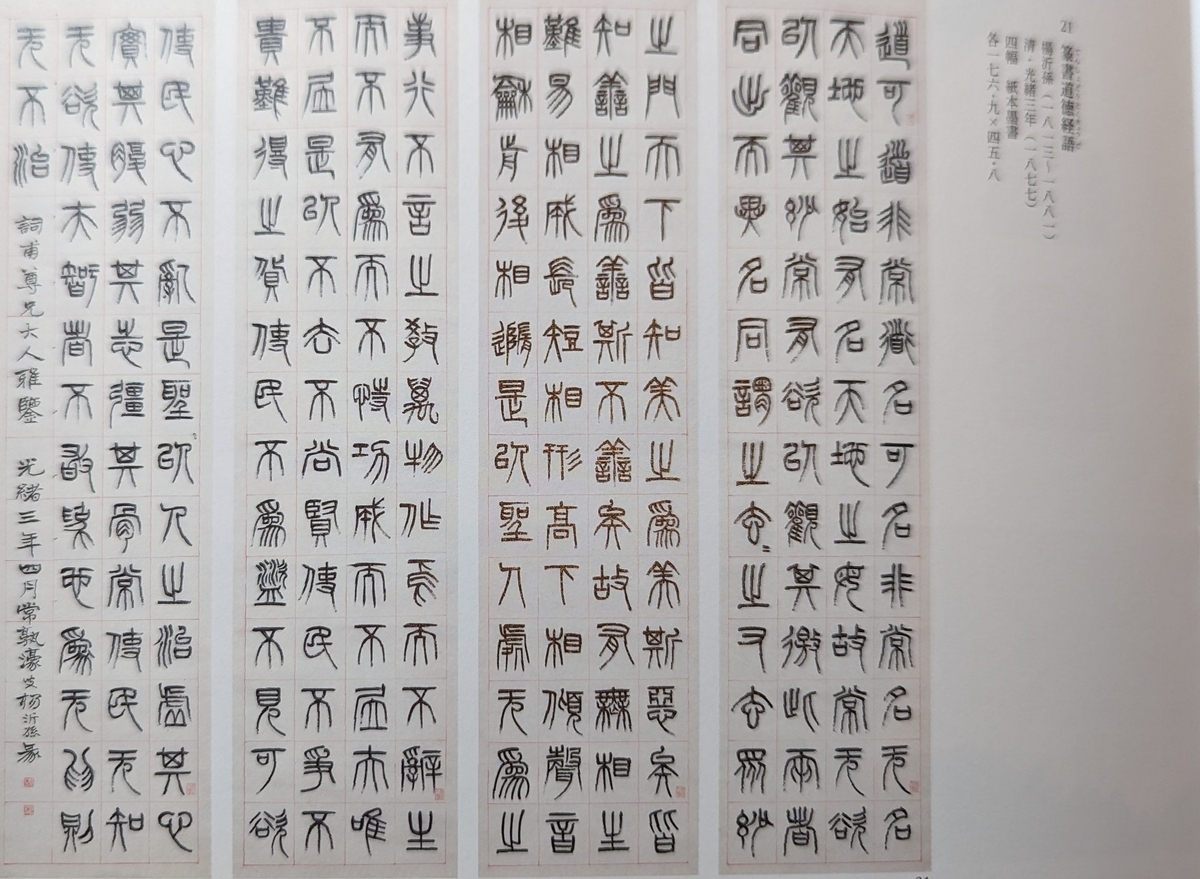 21 篆書道德経語
楊沂孫(一八一三〜一八八一)
清・光緒三年(一八七七)
四幅 紙本墨書
各一七六・九×四五・八
道可道非常道名可名非常名无名
天地之始有名天地之母故常无欲
以觀其妙常有欲以觀其徼此兩者
同出而異名同謂之玄〻之又玄眾妙
之門天下皆知美之爲美斯惡矣皆
知善之爲善斯不善矣故有無相生
難易相成長短相形高下相傾聲音
相龢前後相隨是以聖人處无爲之
事行不言之教萬物作焉而不辭生
而不有爲而不恃功成而不居夫唯
不居是以不去不尚賢使民不爭不
貴難得之貨使民不爲盜不見可欲
使民心不亂是聖以人之治虛其心
實其腹弱其志彊其骨常使民无知
无欲使夫智者不敢也爲无爲則
无不治 詞甫尊兄大人雅鑒 光緒三年四月常孰濠叟楊沂孫篆